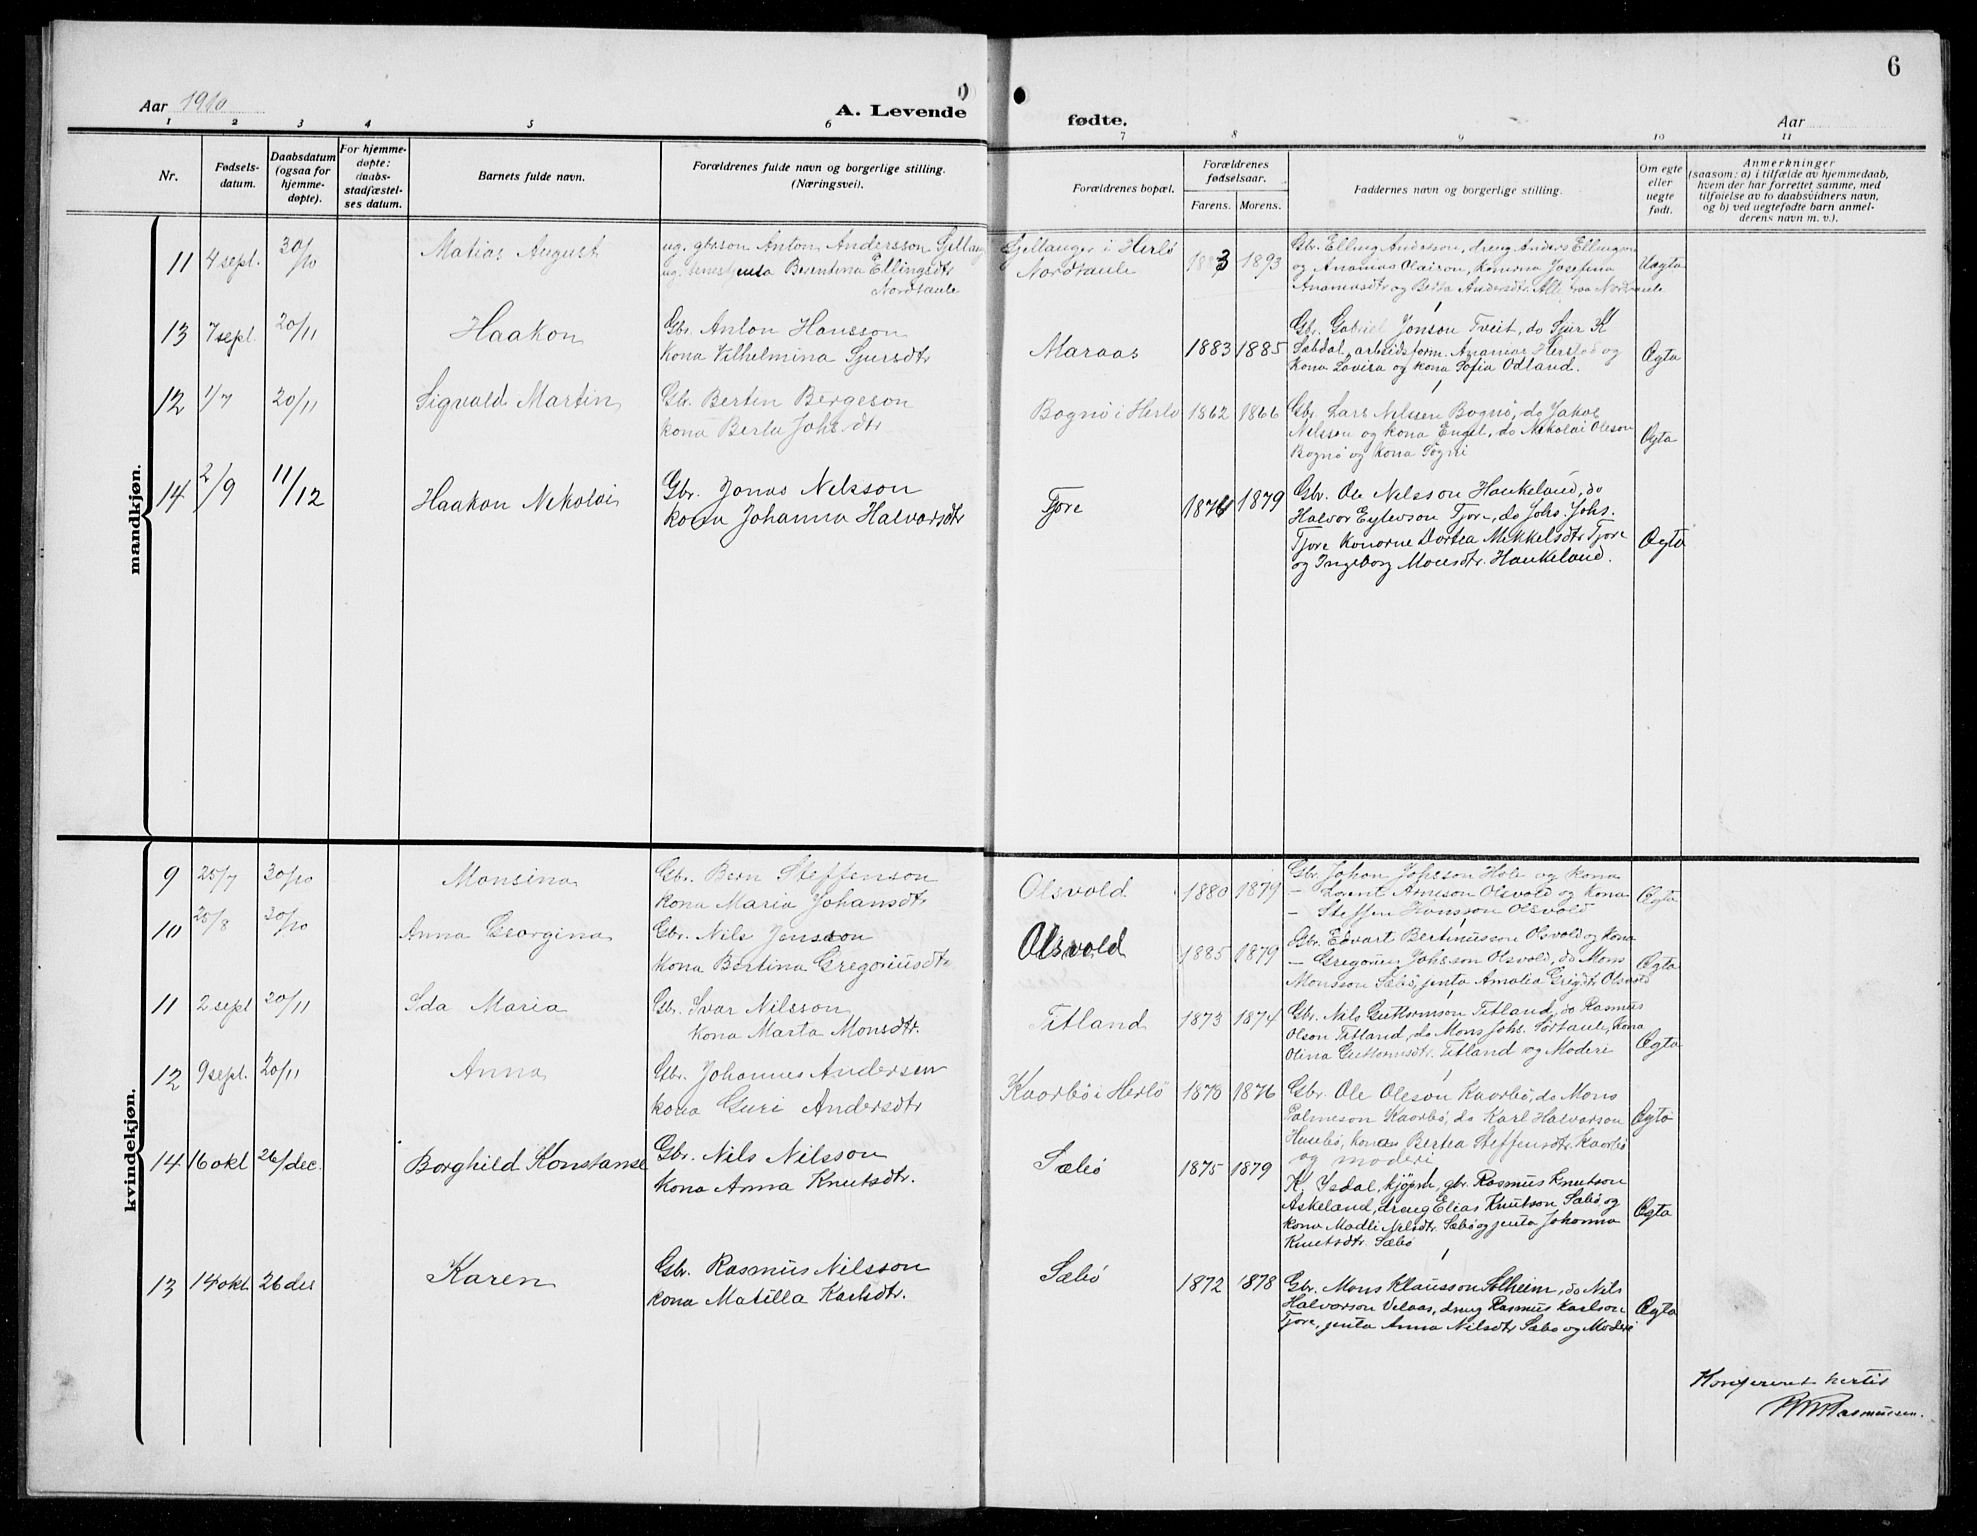 6
Aar 1910
A. Levende
fødte.
Aar
1 2 3 4 5 6 7 8 9 10 11
Nr.
Fødsels-
datum.
Daabsdatum
(ogsaa for
hjemme-
døpte).
For hjemme-
døpte:
daabs-
stadfæstel-
ses datum.
Barnets fulde navn.
Forældrenes fulde navn og borgerlige stilling.
(Næringsvei).
Forældrenes bopæl.
Forældrenes
fødselsaar.
Farens. Morens.
Faddernes navn og borgerlige stilling.
Om egte
eller
uegte
født.
Anmerkninger
(saasom: a) i tilfælde av hjemmedaab,
hvem der har forrettet samme, med
tilføielse av to daabsvidners navn,
og b) ved uegtefødte barn anmel-
derens navn m. v.).
mandkjøn.
11 4 sept. 30/10 Matias August
ug. gbrson Anton Andersson
ug. Berentina Ellingsdtr
Nordtaule
Gjellanger i Herlø
Nordtaule
1883 1893
Gbr. Elling Andersson, dreng Anders Ellingson
og Ananias Olaison, konerna Josefina
Ananiasdtr og Berta Andersdtr. Alle fraa Nordtaule
Uægta
13 7 sept. 20/11 Haakon
Gbr. Anton Hansson
kona Vilhelmina Sjursdtr
Maraas 1883 1885
Gbr. Gabriel Jonson Tveit, do Sjur K
Sæbdal, arbeidsform. Ananias Herstad og
kona Lovisa og kona Sofia Odland.
Ægta
12 1/7 20/11 Sigvald Martin
Gbr. Bertin Bergeson
kona Berta Johs dtr
Bognø i Herlø 1862 1866
Gbr. Lars Nilssen Bognø, do Jakob
Nilsson og kona Engel, do Nikolai Oleson
Bognø og kona Sogni
Ægta
14 2/9 11/12 Haakon Nikolai
Gbr. Jonas Nilsson
kona Johanna Halvorsdtr
Tjore 1874 1879
Gbr. Ole Nilsson Haukeland, do
Halvor Eylevson Tjore, do Johs. Johs.
Tjore konorne Dortea Mikkelsdtr Tjore
og Ingeborg Monsdtr. Haukeland.
Ægta
kvindekjøn.
9 25/7 30/10 Monsina
Gbr. Bern Steffenson
kona Maria Johansdtr
Olsvold 1880 1879
Gbr. Johan Johsson Hole og kona
– Arneson Olsvold og kona
– Steffen Hansson Olsvold
Ægta
10 25/8 30/10 Anna Georgina
Gbr. Nils Jensson
kona Bertina Gregoriusdtr
Olsvold 1885 1879
Gbr. Edvart Bertinusson Olsvold og kona
– Gregorius Johsson Olsvold, do Mons
Monsson Sæbø, jenta Amalia Grigdtr Olsvold
Ægta
11 2 sept 20/11 Ida Maria
Gbr. Ivar Nilsson
kona Marta Monsdtr.
Titland 1873 1874
Gbr. Nils Guttormson Titland, do Rasmus
Olson Titland, do Mons Johs. Sørtaule, kona
Olina Guttormsdtr. Titland og Moderi
Ægta
12 9 sept. 20/11 Anna
Gbr. Johannes Andersen
kona Guri Andersdtr
Kaorbø i Herlø 1870 1876
Gbr. Ole Oleson Kaorbø, do Mons
Palmeson Kaorbø, do Karl Halvorson
Husebø, konan Bertea Steffensdtr. Kaorbø
og moderi
Ægta
14 16 okt 26/dec. Borghild Konstanse
Gbr. Nils Nilsson
kona Anna Knutsdtr.
Sæbø 1875 1879
K. Isdal, kjøpm, gbr. Rasmus Knutson
Askeland, dreng Elias Knutson Sæbø og
kona Madli Nilsdtr. Sæbø og jenta Johanna
Knutsdtr. Sæbø
Ægta
13 14 okt. 26 des Karen
Gbr. Rasmus Nilsson
kona Matilla Karlsdtr.
Sæbø 1872 1878
Gbr. Mons Klausson Solheim, do Nils
Halvorson Velaas, dreng Rasmus Karlson
Tjore, jenta Anna Nilsdtr Sæbø og Moderi
Ægta
Konfereret hertil
Rasmussen.